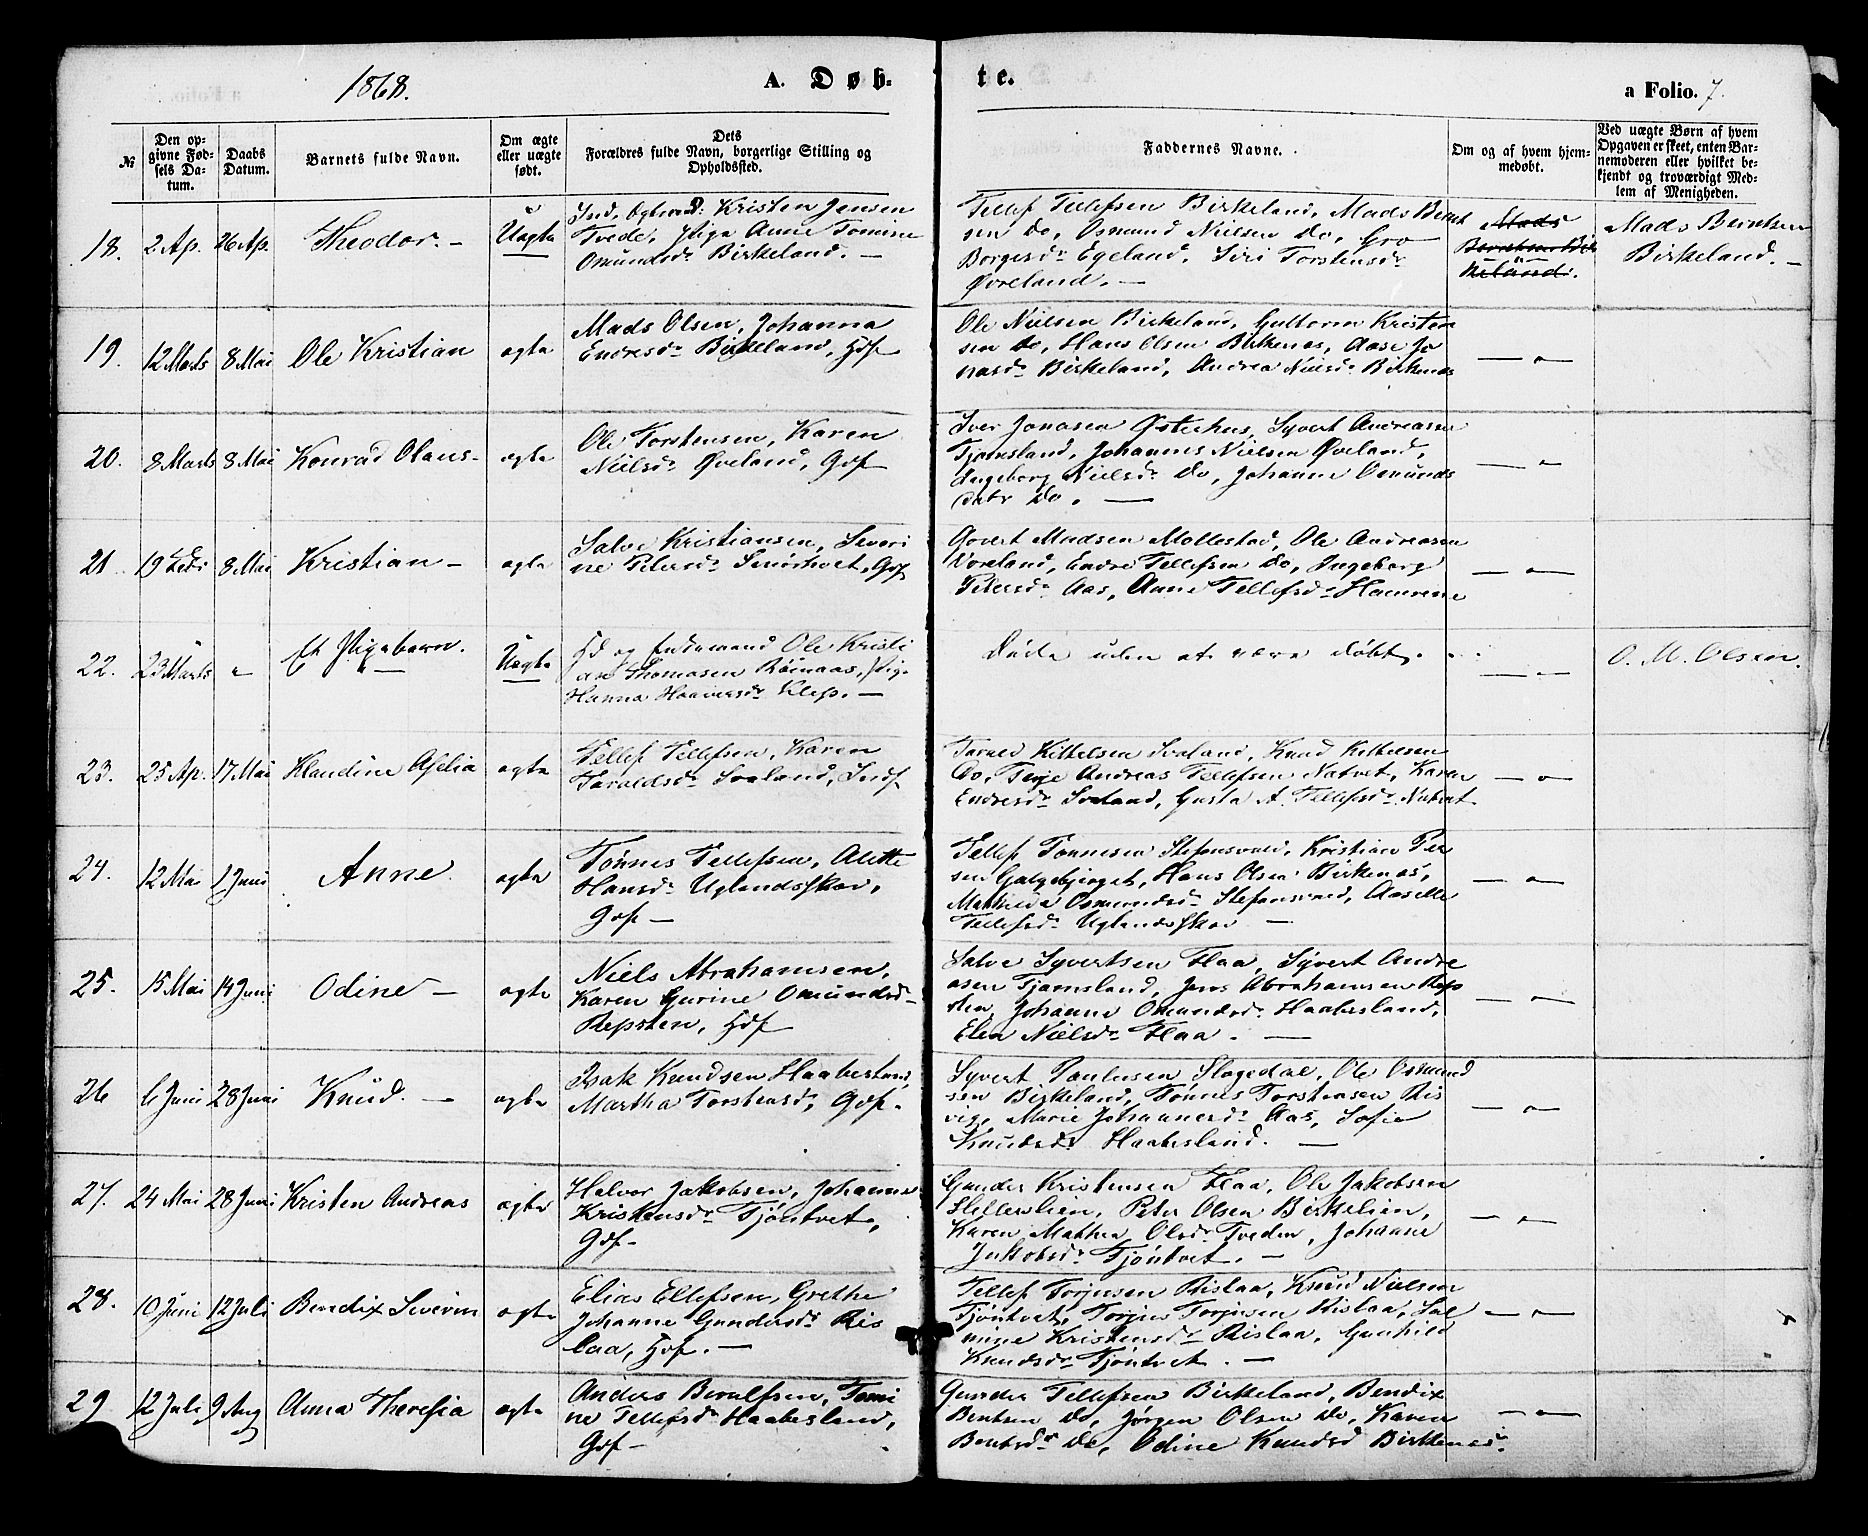 1868.
A. Døb-
te.
a Folio. 7.
№
Den op-
givne Fød-
sels Da-
tum.
Daabs
Datum.
Barnets fulde Navn.
Om ægte
eller uægte
født.
Dets
Forældres fulde Navn, borgerlige Stilling og
Opholdssted.
Faddernes Navne.
Om og af hvem hjem-
medøbt.
Ved uægte Børn af hvem
Opgaven er skeet, enten Bar-
nemoderen eller hvilket be-
kjendt og troværdigt Med-
lem af Menigheden.
18.
2 Ap.
26 Ap.
Theodor. —
Uægte
Kristen Jensen
Tvede, Pige Anne Tomine
Osmundsdr Birkeland. —
Tellef Tellefsen Birkeland, Mads Bernt
sen Do, Osmund Nielsen Do, Gro
Borgesdr Egeland, Siri Torstensdr
Øvreland. —
Mads
Berntsen Bir
keland.
Mads Berntsen
Birkeland. —
19.
12 Marts
8 Mai
Ole Kristian
ægte
Mads Olsen, Johanna
Endresdr Birkeland, Hdf
Ole Nielsen Birkeland, Guttorm Kristen
sen Do, Hans Olsen Birkenes, Aase Jo
nasdr Birkeland, Andrea Nielsdr Birkenes
— " —
20.
8 Marts
8 Mai
Konrad Olaus —
ægte
Ole Torstensen, Karen
Nielsdr Øveland, Gdf
Iver Jonasen Østerhus, Syvert Andreasen
Tjomsland, Johannes Nielsen Øveland,
Ingeborg Nielsdr Do, Johanne Osmunds
datr Do. —
— " —
21
19 Feb
8 Mai
Kristian —
ægte
Salve Kristiansen, Severi
ne Petersdr Smörhvet, Gdf
Govert Madsen Mollestad, Ole Andreasen
Voreland, Endre Tellefsen Do, Ingeborg
Petersdr Aas, Anne Tellefsdr Hamrene
— " —
22.
23 Marts
"
Et Pigebarn.
Uægte
Ole Kristi
an Thomasen Röinaas, Pige
Hanna Klep. —
Döde uden at være döbt.
— " —
O. M. Olsen.
23.
25 Ap.
17 Mai
Klaudine Aselia
ægte
Tellef Tellefsen, Karen
Taraldsdr Svaland, Indf
Tarald Kittelsen Svaland, Knud Kittelsen
Do, Terje Andreas Tellefsen Natvet, Karen
Endresdr Svaland, Gusta A. Tellefsdr Natvet
— " —
24.
12 Mai
1 Juni
Anne.
ægte
Tönnes Tellefsen, Alette
Hansdr Uglandsskar,
Gdf —
Tellef Tönnesen Stefansvald, Kristian Per
sen Galgebjerget, Hans Olsen Birkenes,
Mathilda Osmundsdr Stefansvald, Aaselle
Tellefsdr Uglandsskar —
— " —
25.
15 Mai
14 Juni
Odine —
ægte
Niels Abrahamsen,
Karen Gurine Omundsdr
Repsten, Hdf
Salve Syvertsen Flaa, Syvert Andre
asen Tjomsland, Jens Abrahamsen Rep
sten, Johanne Osmundsdr Haabesland,
Elen Nielsdr Flaa. —
— " —
26
6 Juni
28 Juni
Knud. —
ægte
Isak Knudsen Haabesland,
Martha Torstensdr, Gdf.
Syvert Paulusen Slogedal, Ole Osmund
sen Birkeland, Tönnes Torstensen Ris
vig, Marie Johannesdr Aas, Sofie
Knudsdr Haabesland. —
— " —
27.
24 Mai
28 Juni
Kristen Andreas
ægte
Halvor Jakobsen, Johanne
Kristensdr Tjöntvet,
Gdf —
Gunder Kristensen Flaa, Ole Jakobsen
Hellerslien, Peter Olsen Birkelien,
Karen Mathea Olsdr Tveden, Johanne
Jakobsdr Tjöntvet. —
— " —
28.
10 Juni
12 Juli
Bendix Severin
ægte
Elias Ellefsen, Grethe
Johanne Gundersdr Ris
laa, Hdf. —
Tellef Torjusen Rislaa, Knud Nielsen
Tjöntvet, Torjus Torjusen Rislaa, Sal
mine Kristensdr Rislaa, Gunhild
Knudsdr Tjöntvet. —
— " —
29
12 Juli
9 Aug
Anna Theresia
ægte
Anders Berulfsen, Tomi
ne Tellefsdr Haabesland,
Gdf —
Gunder Tellefsen Birkeland, Bendix
Bentsen Do, Jörgen Olsen Do, Karen
Bentsdr Do, Odine Knudsd Birkenes.
— " —